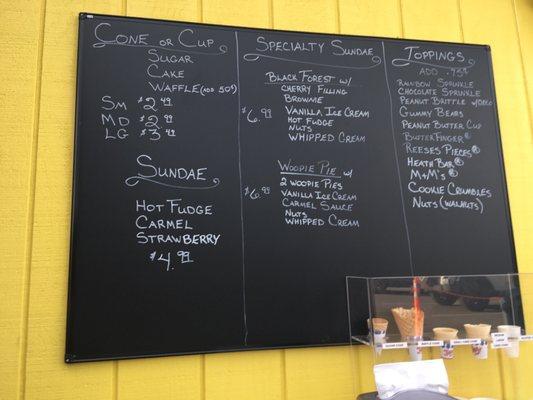 Cone or Cup
Sugar
Cake
Waffle (add 50¢)
Sm $2.49
MD $2.99
LG $3.49
Sundae
Hot Fudge
Carmel
Strawberry
$4.99
Specialty Sundae
Black Forest w/
Cherry Filling
Brownie
$6.99 Vanilla Ice Cream
Hot Fudge
Nuts
Whipped Cream
Woopie Pie w/
2 Woopie Pies
$6.99 Vanilla Ice Cream
Carmel Sauce
Nuts
Whipped Cream
Toppings
Add .75¢
Rainbow Sprinkle
Chocolate Sprinkle
Peanut Brittle
Gummy Bears
Peanut Butter Cup
ButterFinger®
Reeses Pieces®
Heath Bar®
M+M's®
Cookie Crumbles
Nuts (walnuts)